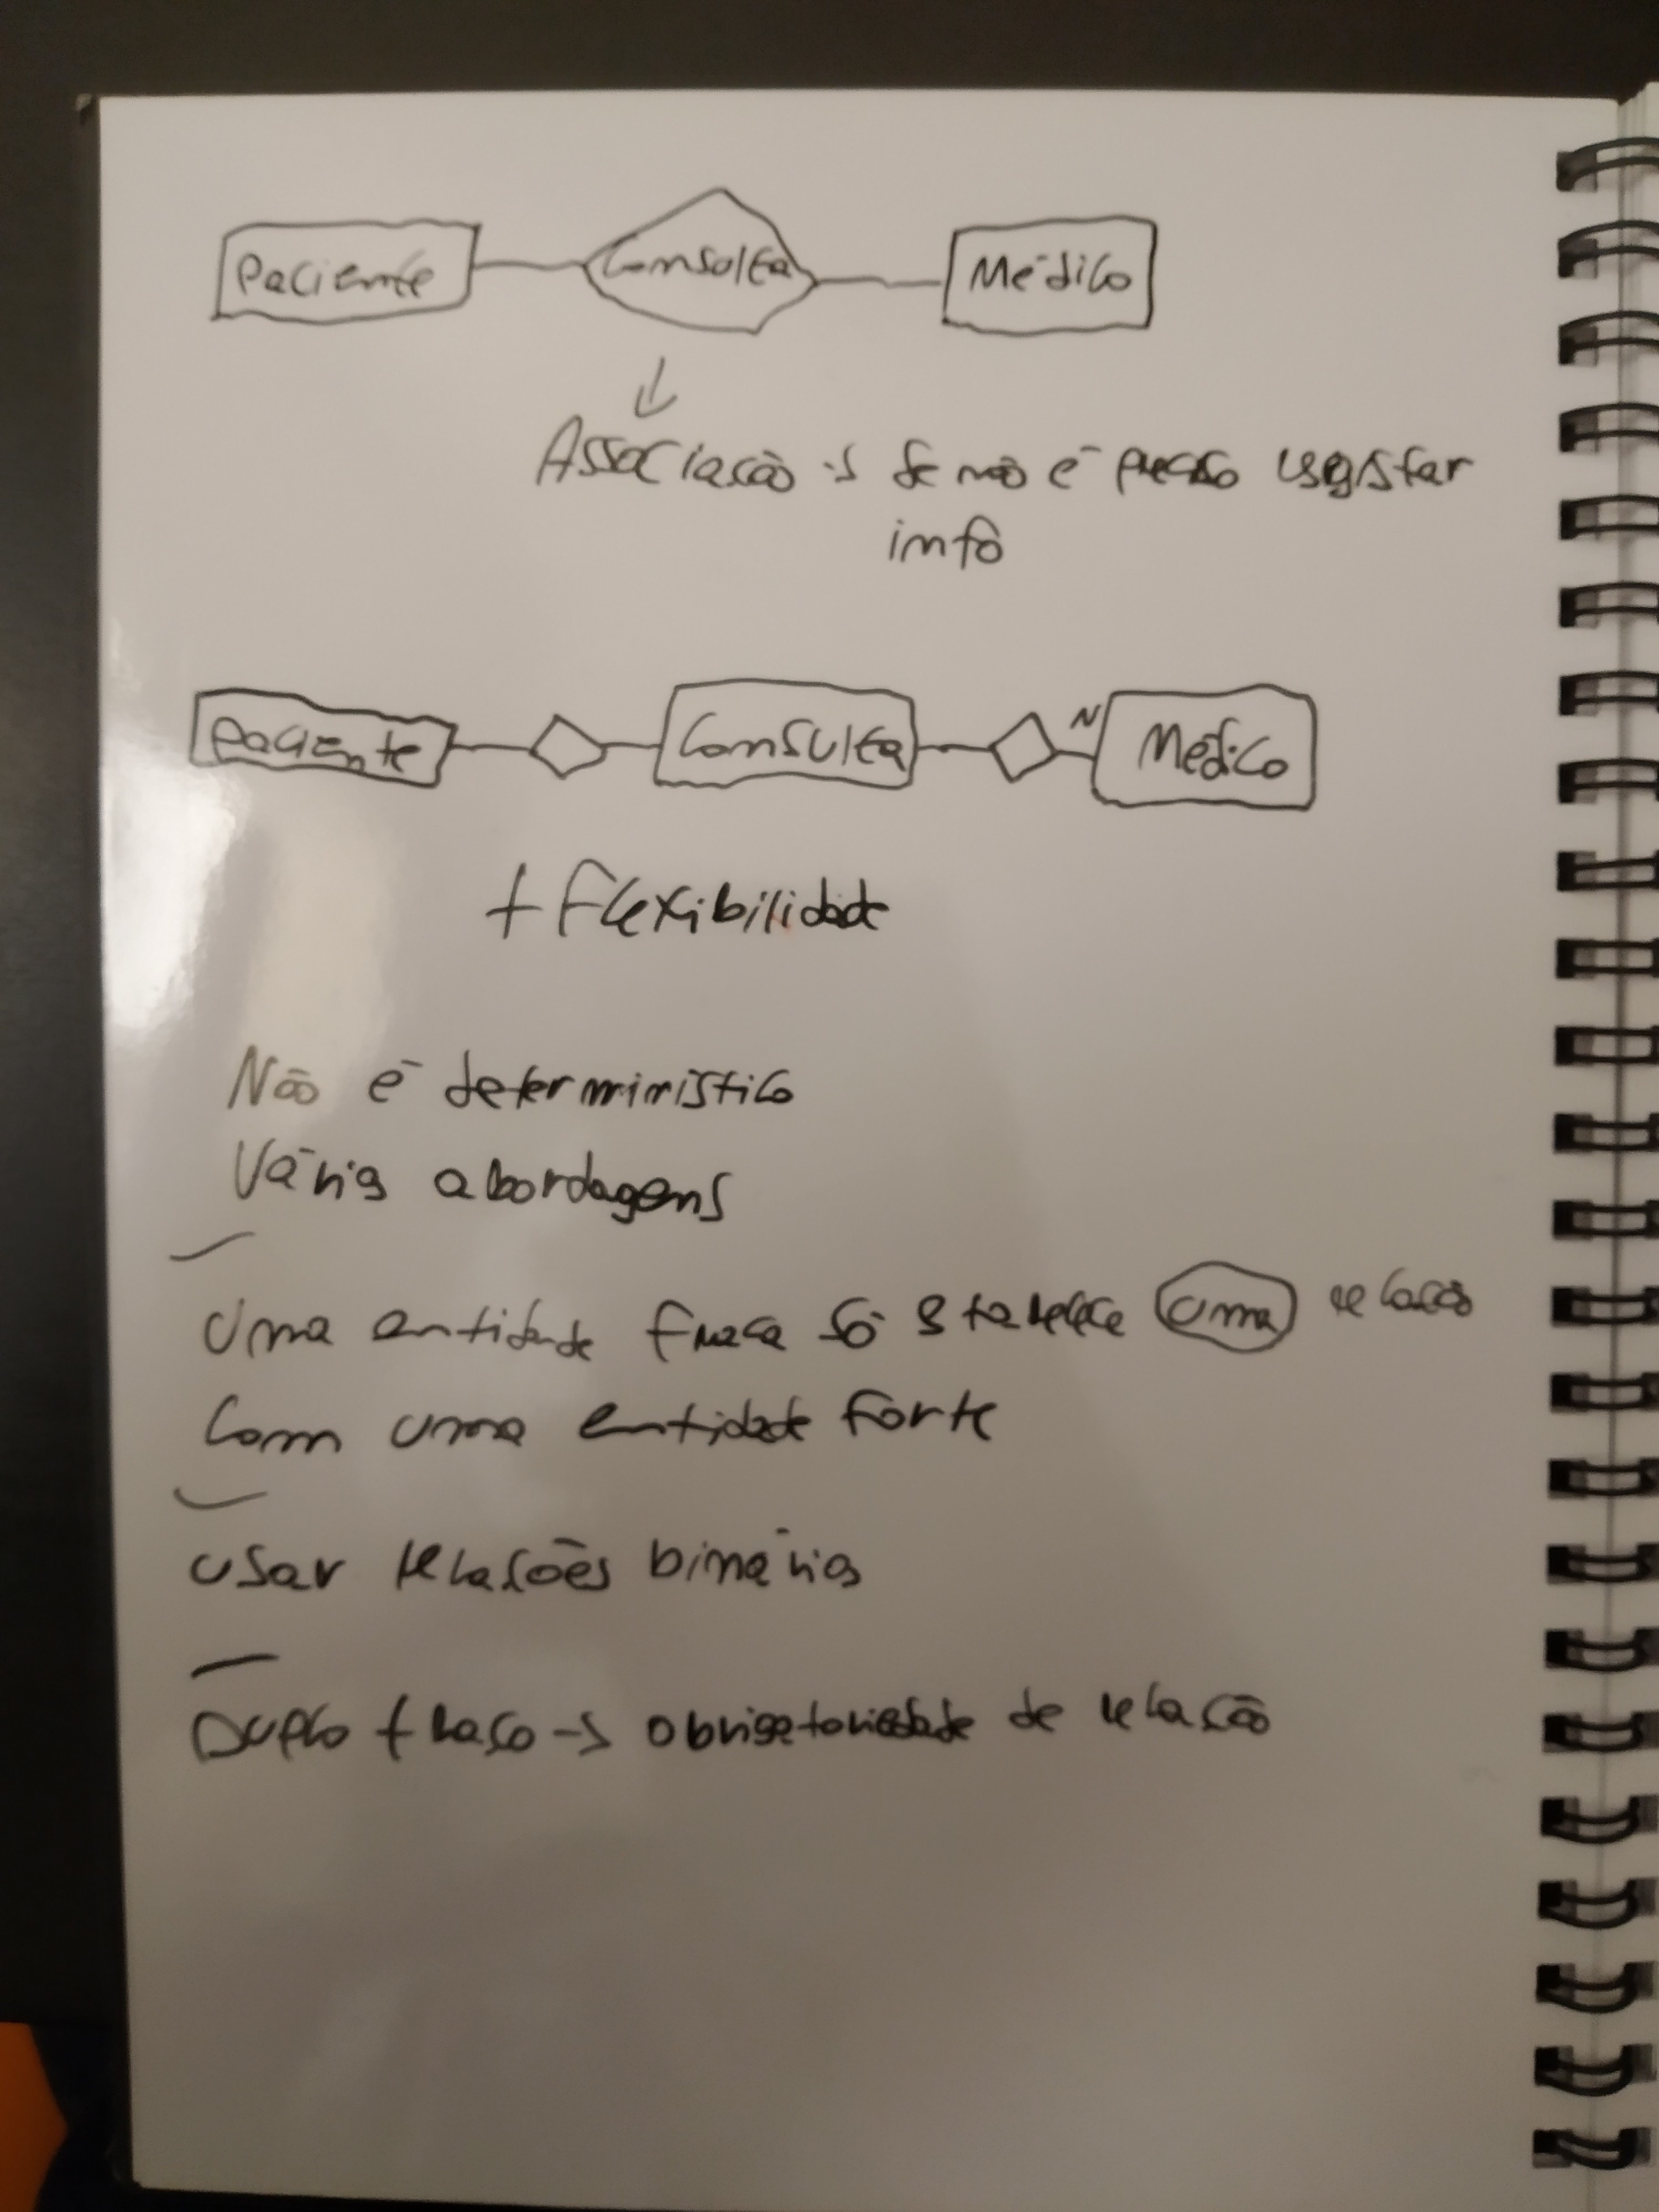 Paciente Consulta Médico
Associação → Se não é preciso registar
info
Paciente Consulta N Médico
+ Flexibilidade
Não é determinístico
Várias abordagens
Uma entidade fraca só estabelece uma relação
Com uma entidade forte
Usar relações binárias
Duplo traço → obrigatoriedade de relação